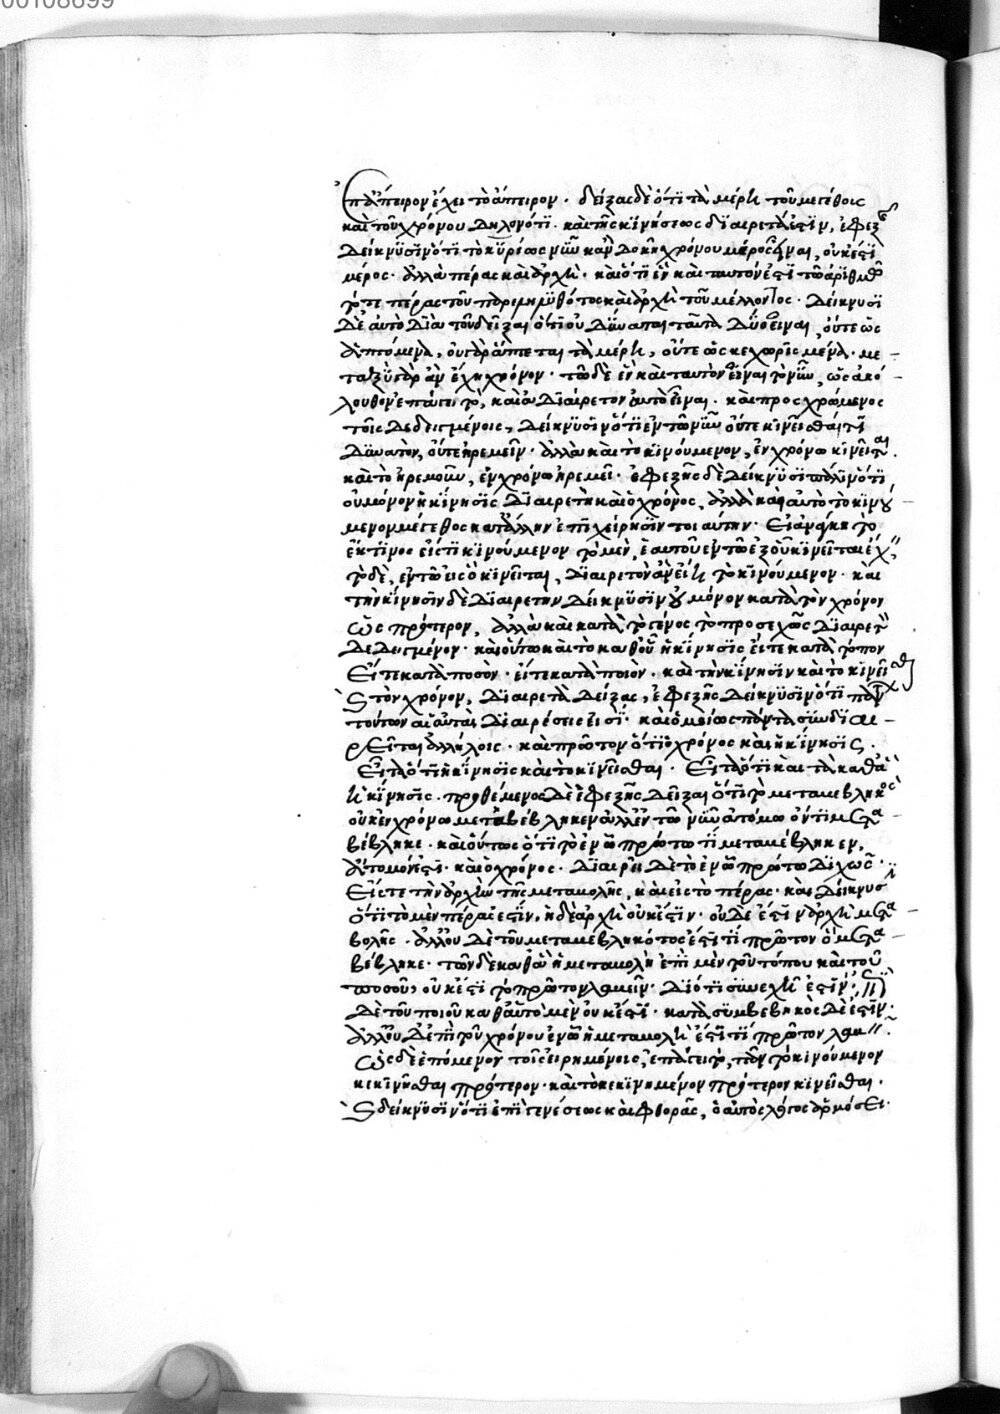 00108699
ἐπ' ἄπειρον ἔχει τὸ ἄπειρον · δείξας δὲ ὅτι τὰ μέρη τοῦ μεγέθους
καὶ τοῦ χρόνου δηλονότι · καὶ τῆς κινήσεως διαιρετά ἐστιν, ἐφεξῆς
δείκνυσιν ὅτι τὸ κυρίως νῦν κἂν δοκῇ χρόνου μέρος εἶναι, οὐκ ἔστι
μέρος · ἀλλὰ πέρας καὶ ἀρχή · καὶ ὅτι ἓν καὶ ταυτόν ἐστι τῷ ἀριθμῷ
τό τε πέρας τοῦ παρεληλυθότος καὶ ἀρχὴ τοῦ μέλλοντος · δείκνυσι
δὲ αὐτὸ διὰ τοῦ δεῖξαι ὅτι οὐ δύναται ταῦτα δύο εἶναι, οὔτε ὡς
ἁπτόμενα, οὐ γὰρ ἅπτεται τὰ μέρη, οὔτε ὡς κεχωρισμένα · με
ταξὺ γὰρ ἂν ἔχῃ χρόνον · τῷ δὲ ἓν καὶ ταυτὸν εἶναι τὸ νῦν, ὡς ἀκό
λουθον ἐπάγει τὸ, καὶ ἀδιαίρετον αὐτὸ εἶναι · καὶ προσχρώμενος
τοῖς δεδειγμένοις, δείκνυσιν ὅτι ἐν τῷ νῦν οὔτε κινεῖσθαί τι
δυνατὸν, οὔτε ἠρεμεῖν · ἀλλὰ καὶ τὸ κινούμενον, ἐν χρόνῳ κινεῖται.
καὶ τὸ ἠρεμοῦν, ἐν χρόνῳ ἠρεμεῖ · ἐφεξῆς δὲ δείκνυσι πάλιν ὅτι
οὐ μόνον ἡ κίνησις διαιρετὴ καὶ ὁ χρόνος, ἀλλὰ καὶ αὐτὸ τὸ κινού
μενον μέγεθος κατ' ἄλλην ἐπιχείρησιν τοιαύτην · εἰ ἀνάγκη τὸ
ἔκ τινος εἴς τι κινούμενον τὸ μὲν, ἑαυτοῦ ἐν τῷ ἐξ οὗ κινεῖται ἔχειν
τὸ δὲ, ἐν τῷ εἰς ὃ κινεῖται, διαιρετὸν ἂν εἴη τὸ κινούμενον · καὶ
τὴν κίνησιν δὲ διαιρετὴν δείκνυσιν οὐ μόνον κατὰ τὸν χρόνον
ὡς πρότερον, ἀλλὰ καὶ κατὰ τὸ
δεδειγμένον · καὶ οὕτω καὶ τὸ καθ' οὗ ἡ κίνησις εἴτε κατὰ τόπον
εἴτε κατὰ ποσὸν · εἴτε κατὰ ποιὸν · καὶ τὴν κίνησιν καὶ τὸ κινεῖσθαι
καὶ τὸν χρόνον, διαιρετὰ δείξας, ἐφεξῆς δείκνυσιν ὅτι πάντων
τούτων αἱ αὐταὶ διαιρέσεις εἰσί · καὶ ὁμοίως πάντα συνδιαι
ρεῖται ἀλλήλοις · καὶ πρῶτον ὅτι ὁ χρόνος καὶ ἡ κίνησις .
εἶτα ὅτι ἡ κίνησις καὶ τὸ κινεῖσθαι · εἶτα ὅτι καὶ τὰ καθ' ἃ
ἡ κίνησις · προθέμενος δὲ ἐφεξῆς δεῖξαι ὅτι τὸ μεταβεβληκὸς
οὐκ ἐν χρόνῳ μεταβέβληκεν ἀλλ' ἐν τῷ νῦν ἀτόμῳ ὄντι μετα
βέβληκε · καὶ οὕτως ὅτι τὸ ἐν ᾧ πρώτῳ τι μεταβέβληκεν,
ἄτομόν ἐστι · καὶ ὁ χρόνος · διαιρεῖ δὲ τὸ ἐν ᾧ πρώτῳ διχῶς ·
εἴς τε τὴν ἀρχὴν τῆς μεταβολῆς, καὶ εἰς τὸ πέρας · καὶ δείκνυσιν
ὅτι τὸ μὲν πέρας ἔστιν, ἡ δὲ ἀρχὴ οὐκ ἔστιν · οὐδὲ ἔστιν ἀρχὴ μετα
βολῆς · ἀλλ' οὐδὲ τοῦ μεταβεβληκότος ἐστί τι πρῶτον ὃ μετα
βέβληκε · τῶν δὲ καθ' ἃ ἡ μεταβολὴ ἐπὶ μὲν τοῦ τόπου καὶ τοῦ
ποσοῦ, οὐκ ἔστι τὸ πρῶτον λαβεῖν · διότι συνεχῆ ἐστιν · ἐπὶ
δὲ τοῦ ποιοῦ καθ' αὑτὸ μὲν οὐκ ἔστι · κατὰ συμβεβηκὸς δὲ ἔστιν ·
ἀλλ' οὐδ' ἐπὶ τοῦ χρόνου ἐν ᾧ ἡ μεταβολὴ ἔστι τι πρῶτον λαβεῖν
ὡς δὲ ἑπόμενον τοῖς εἰρημένοις, ἐπάγει τὸ, πᾶν τὸ κινούμενον
κεκινῆσθαι πρότερον · καὶ τὸ κεκινημένον πρότερον κινεῖσθαι ·
καὶ δείκνυσιν ὅτι ἐπὶ γενέσεως καὶ φθορᾶς, ὁ αὐτὸς λόγος ἁρμόσει ·